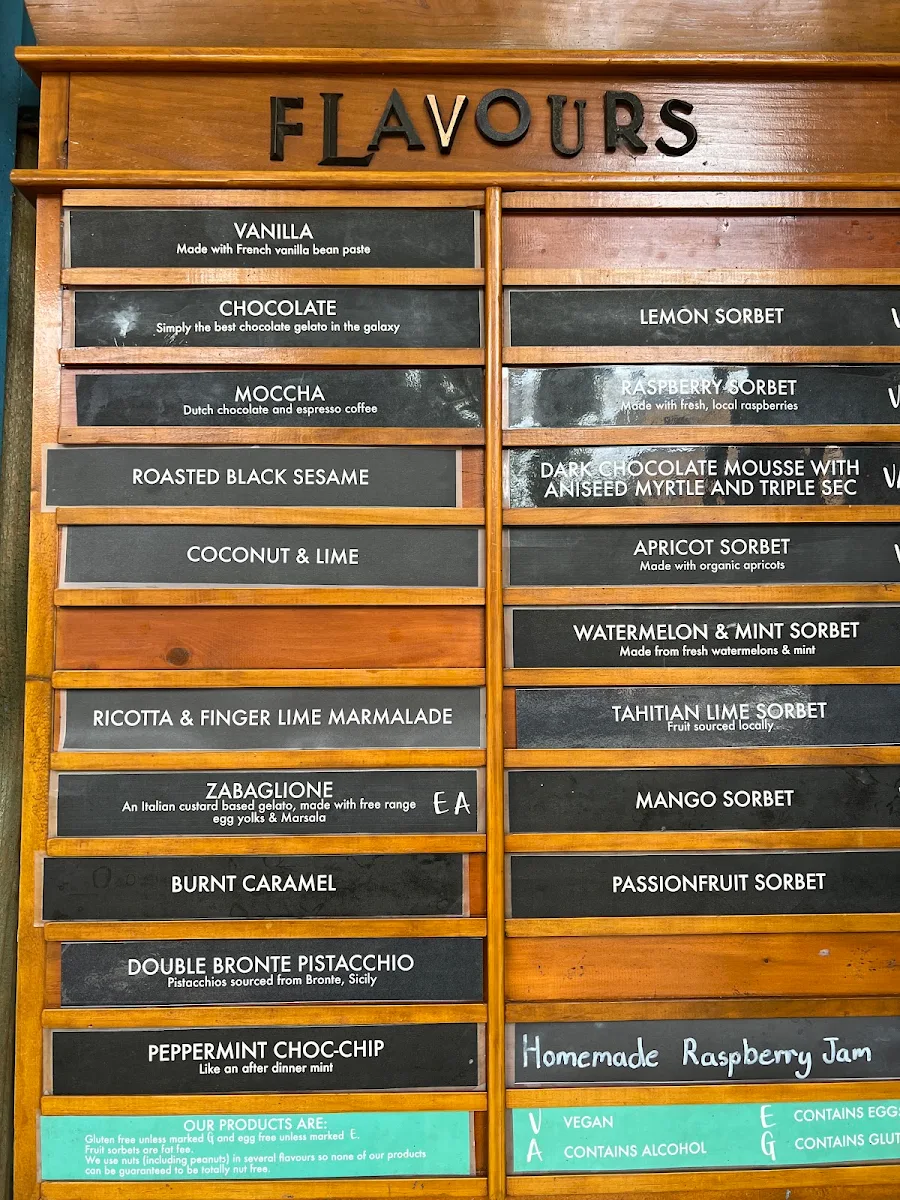 FLAVOURS
VANILLA
Made with French vanilla bean paste
CHOCOLATE
Simply the best chocolate gelato in the galaxy
MOCCHA
Dutch chocolate and espresso coffee
ROASTED BLACK SESAME
COCONUT & LIME
RICOTTA & FINGER LIME MARMALADE
ZABAGLIONE
An Italian custard based gelato, made with free range
egg yolks & Marsala
E A
BURNT CARAMEL
DOUBLE BRONTE PISTACCHIO
Pistacchios sourced from Bronte, Sicily
PEPPERMINT CHOC-CHIP
Like an after dinner mint
OUR PRODUCTS ARE:
Gluten free unless marked G and egg free unless marked E.
Fruit sorbets are fat fee.
We use nuts (including peanuts) in several flavours so none of our products
can be guaranteed to be totally nut free.
LEMON SORBET
V
RASPBERRY SORBET
Made with fresh, local raspberries
V
DARK CHOCOLATE MOUSSE WITH
ANISEED MYRTLE AND TRIPLE SEC
VA
APRICOT SORBET
Made with organic apricots
WATERMELON & MINT SORBET
Made from fresh watermelons & mint
TAHITIAN LIME SORBET
Fruit sourced locally
MANGO SORBET
PASSIONFRUIT SORBET
Homemade Raspberry Jam
V VEGAN
A CONTAINS ALCOHOL
E CONTAINS EGGS
G CONTAINS